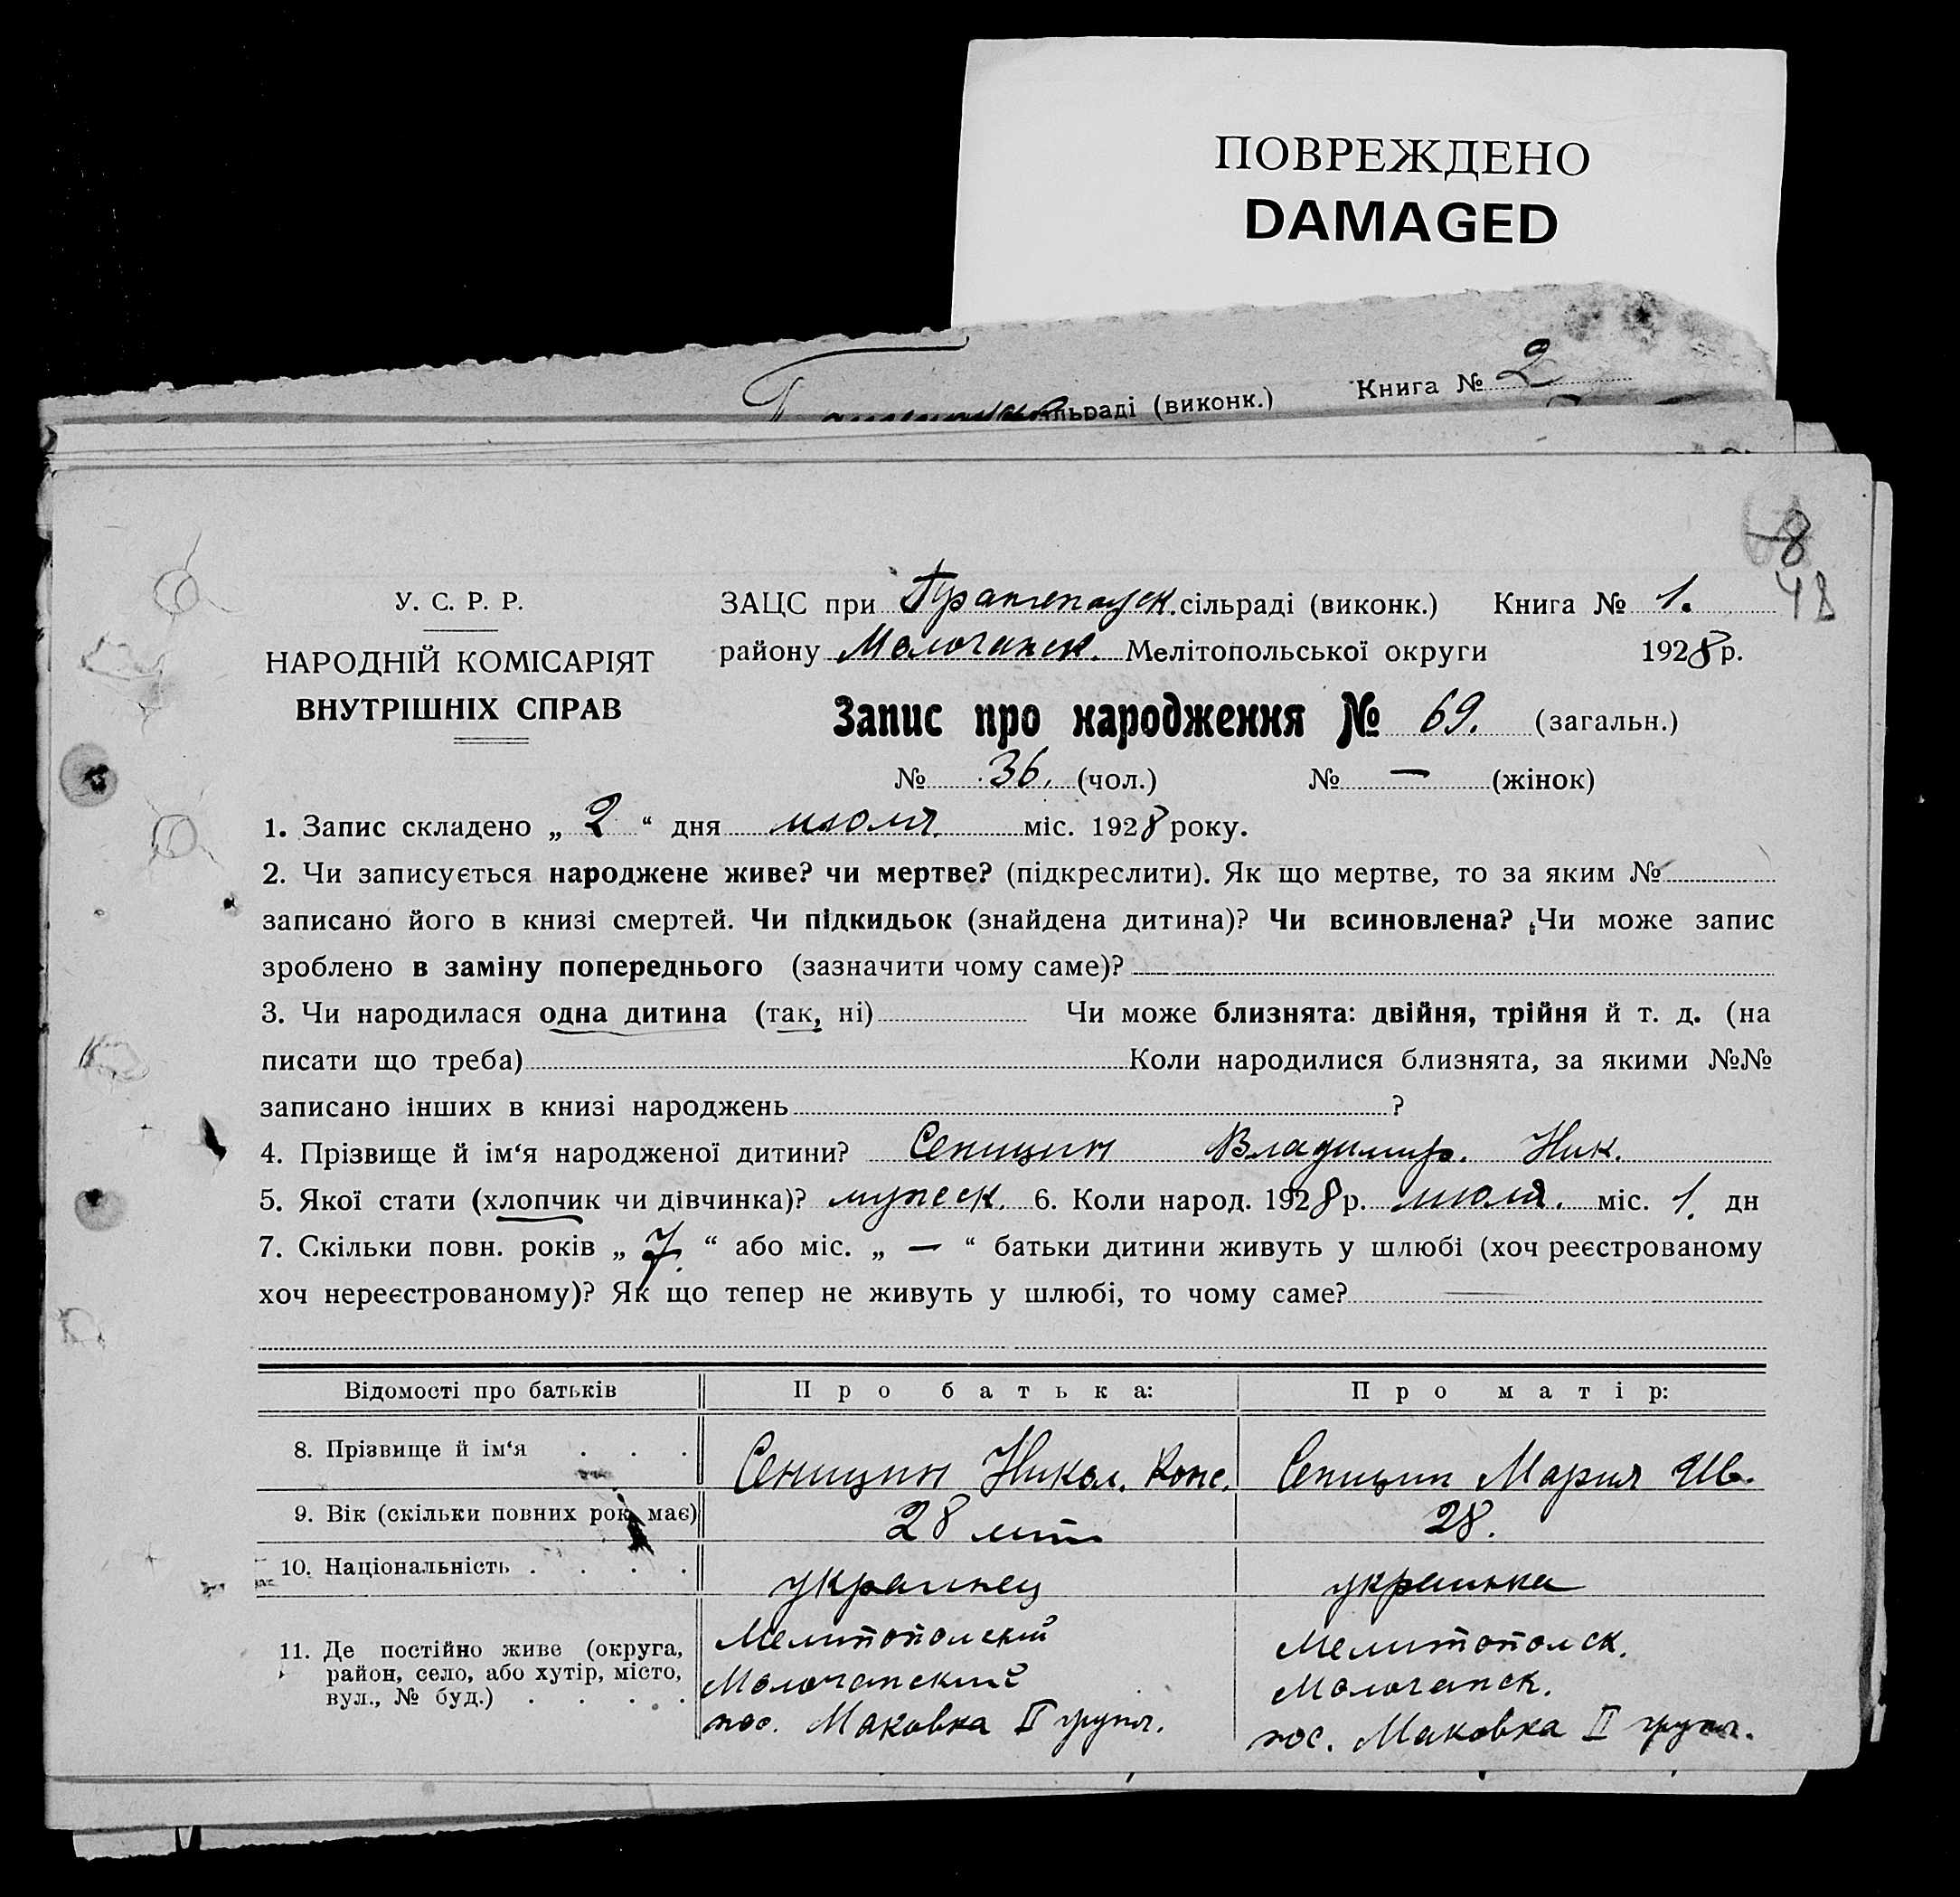 ПОВРЕЖДЕНО
DAMAGED
сільраді (виконк.) Книга № 2
8
48
У. С. Р. Р.
НАРОДНІЙ КОМІСАРІЯТ
ВНУТРІШНІХ СПРАВ
ЗАЦС при сільраді (виконк.) Книга № 1.
району Молочанск. Мелітопольської округи 1928 р.
Запис про народження № 69. (загальн.)
№ 36. (чол.) № — (жінок)
1. Запис складено „ 2 “ дня июля. міс. 1928 року.
2. Чи записується народжене живе? чи мертве? (підкреслити). Як що мертве, то за яким №
записано його в книзі смертей. Чи підкидьок (знайдена дитина)? Чи всиновлена? Чи може запис
зроблено в заміну попереднього (зазначити чому саме)?
3. Чи народилася одна дитина (так, ні) Чи може близнята: двійня, трійня й т. д. (на
писати що треба) Коли народилися близнята, за якими №№
записано інших в книзі народжень ?
4. Прізвище й ім‘я народженої дитини? Сеницин Владимир. Ник.
5. Якої стати (хлопчик чи дівчинка)? мужеск. 6. Коли народ. 1928 р. июля. міс. 1. дн
7. Скільки повн. років „ 7. “ або міс. „ — “ батьки дитини живуть у шлюбі (хоч реєстрованому
хоч нереєстрованому)? Як що тепер не живуть у шлюбі, то чому саме? —
Відомості про батьків Про батька: Про матір:
8. Прізвище й ім‘я . . . Сеницин Никол. Конс. Сеницин Мария Ив.
9. Вік (скільки повних рок. має) 28 лет 28.
10. Національність . . . . украинец украинка
11. Де постійно живе (округа, район, село, або хутір, місто, вул., № буд.) . . . .
Мелитопольский Мелитопольск.
Молочанский Молочанск.
пос. Маковка II групп. пос. Маковка II групп.